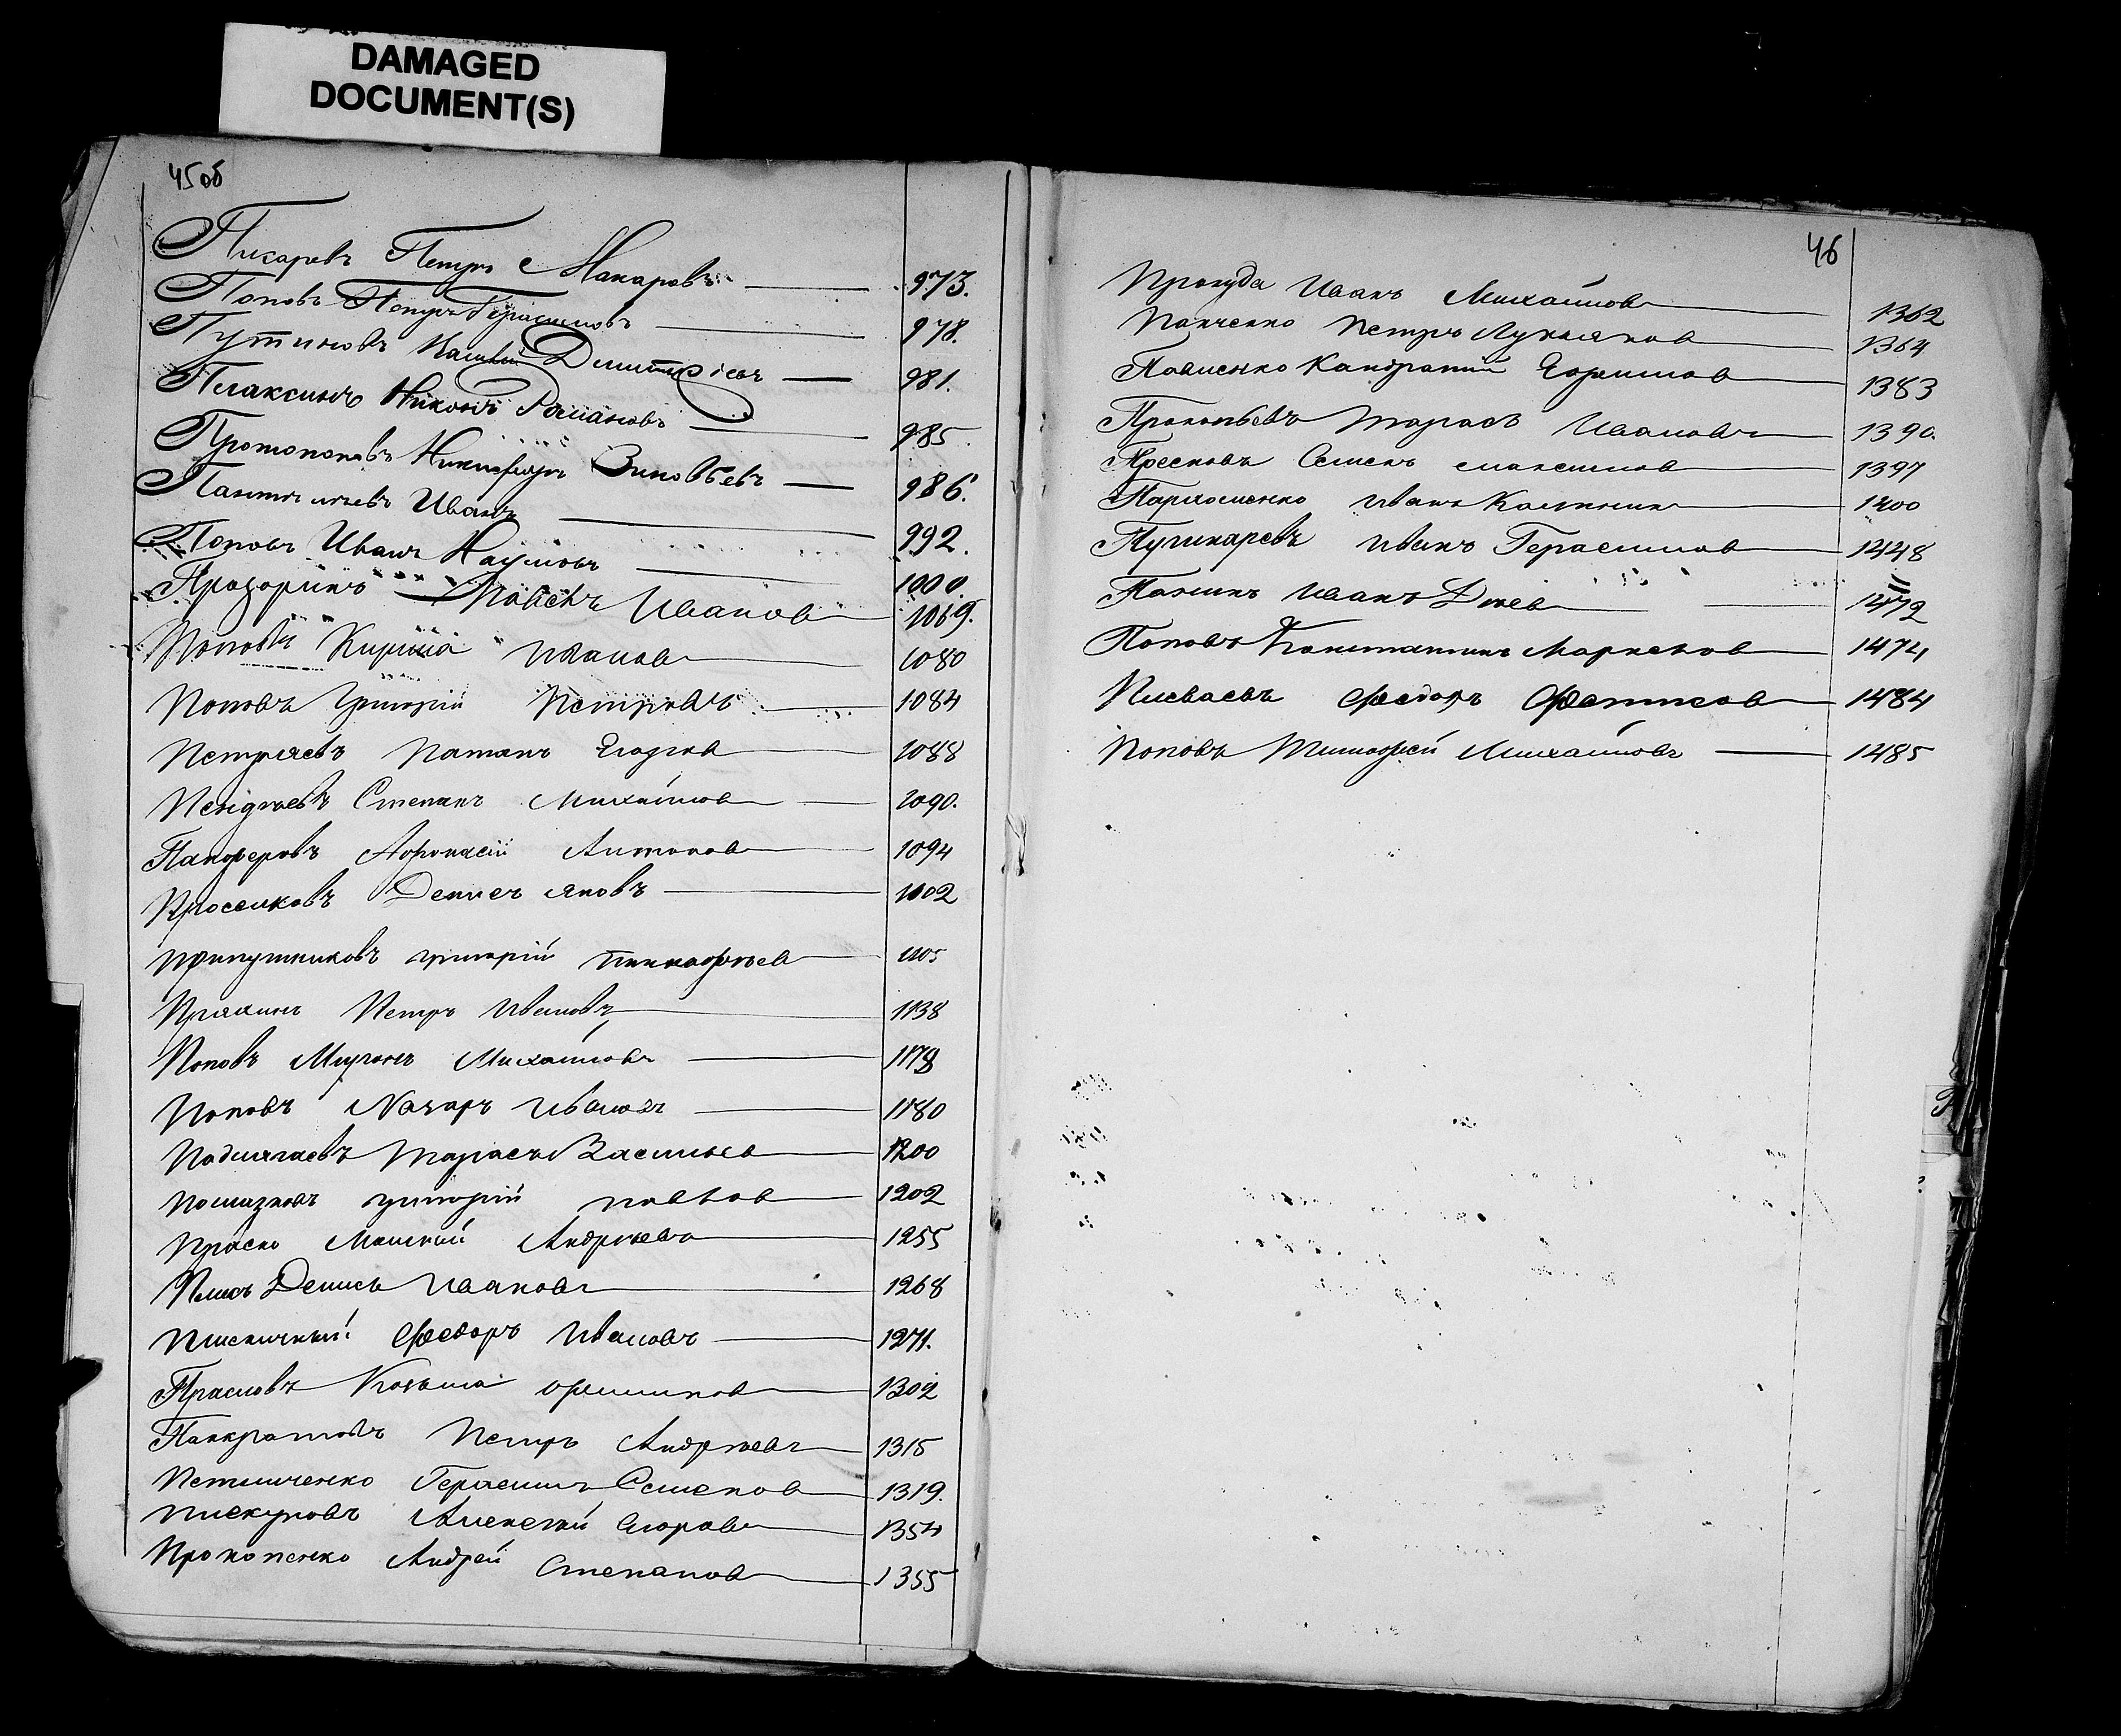 DAMAGED
DOCUMENT(S)
45об
Писаревъ Петръ Макаровъ 973.
Поповъ Петръ Герасимовъ 978.
Путиновъ Дмитріевъ 981.
Плаксинъ Никонъ Романовъ 985.
Протопоповъ Никифоръ Зиновьевъ 986.
Пантелѣевъ Иванъ 992.
Поповъ Иванъ Наумовъ 1000.
Прозоринъ Павелъ Иванов 1069.
Поповъ Кирила Иванов 1080
Поповъ Григорій Петровъ 1084
Петряевъ Потапъ Егоров 1088
Степанъ Михайлов 1090.
Панферовъ Афонасій Антонов 1094
Просеиковъ Денисъ Яковъ 1102
Припутниковъ григорій 1105
Пряхинъ Петръ Ивановъ 1138
Поповъ Миронъ Михайловъ 1178
Поповъ Назаръ Ивановъ 1180
Тарасъ Васильев 1200
Помазковъ григорій павлов 1202
Андреева 1255
Денисъ Иванов 1268
Пшеничный Федоръ Ивановъ 1271.
Козьма 1302
Панкратовъ Петръ Андреевъ 1315
Петличенко Герасимъ Семенов 1319.
Пискуновъ Алексей Егоров 1354
Прокопенко Андрей Степанов 1355
46
Прокуда Иванъ Михайлов 1362
Панченко Петръ Лукьянов 1364
Павленко Кондратий Ефимов 1383
Прокопьевъ Тарасъ Ивановъ 1390.
Пресновъ Семенъ максимов 1397
Пархоменко Иванъ 1400
Пушкаревъ Иванъ Герасимов 1448
Панинъ Иванъ 1472
Поповъ Константинъ Маркелов 1474
Плеваевъ Федоръ Фетисов 1484
Поповъ Тимофей Михайловъ 1485